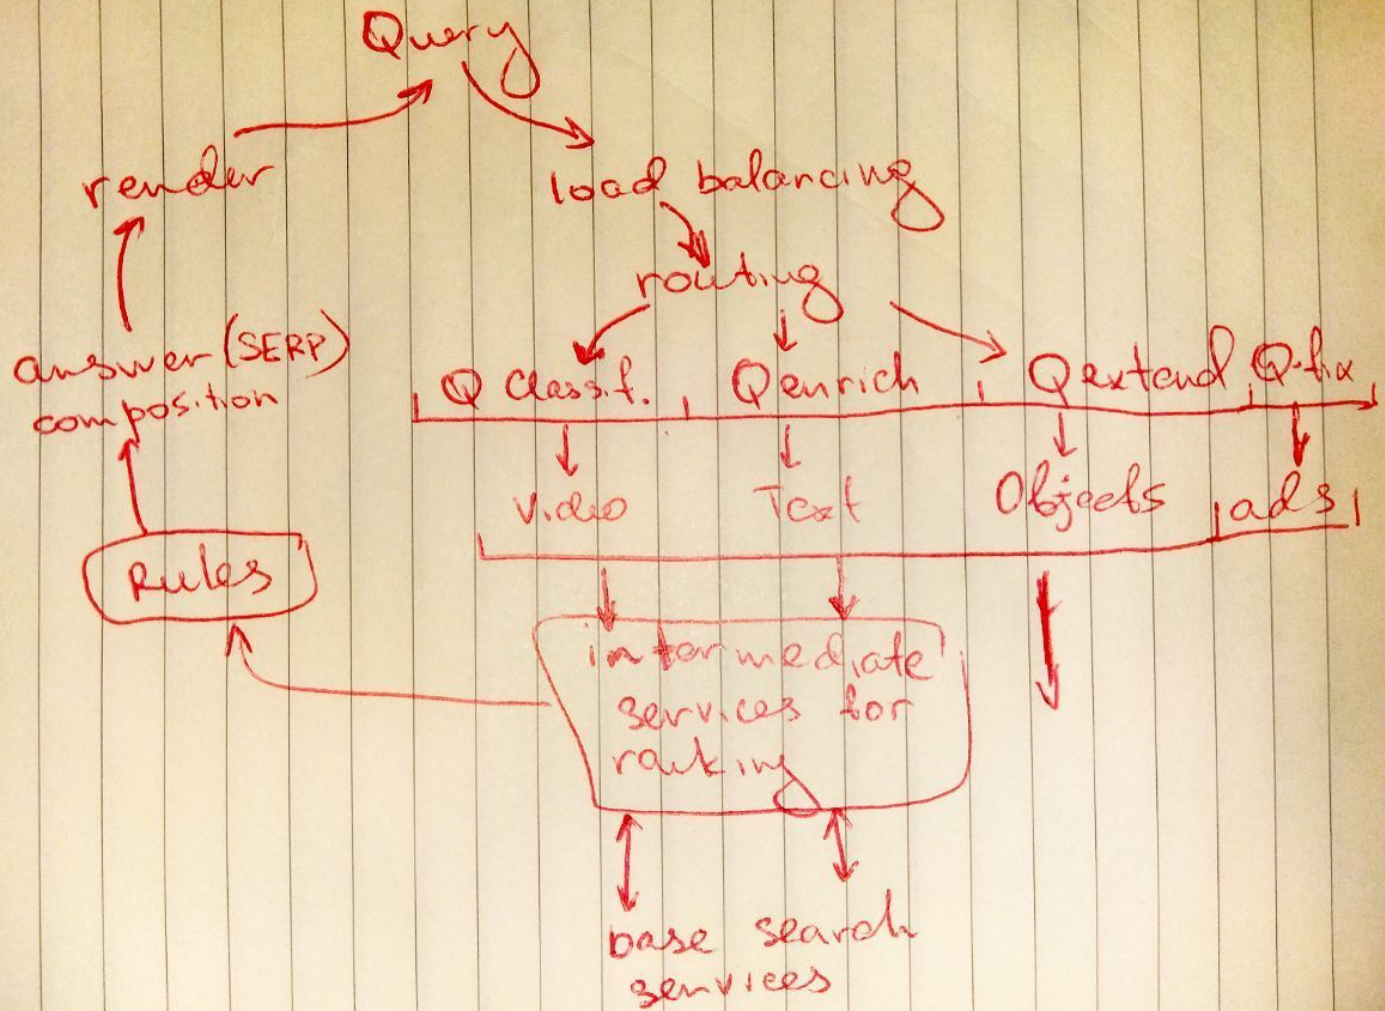 Query
render
load balancing
routing
answer (SERP)
composition
Q Classif. Qenrich Qextend Q-fix
Video Text Objects ads
Rules
intermediate
services for
ranking
base search
services